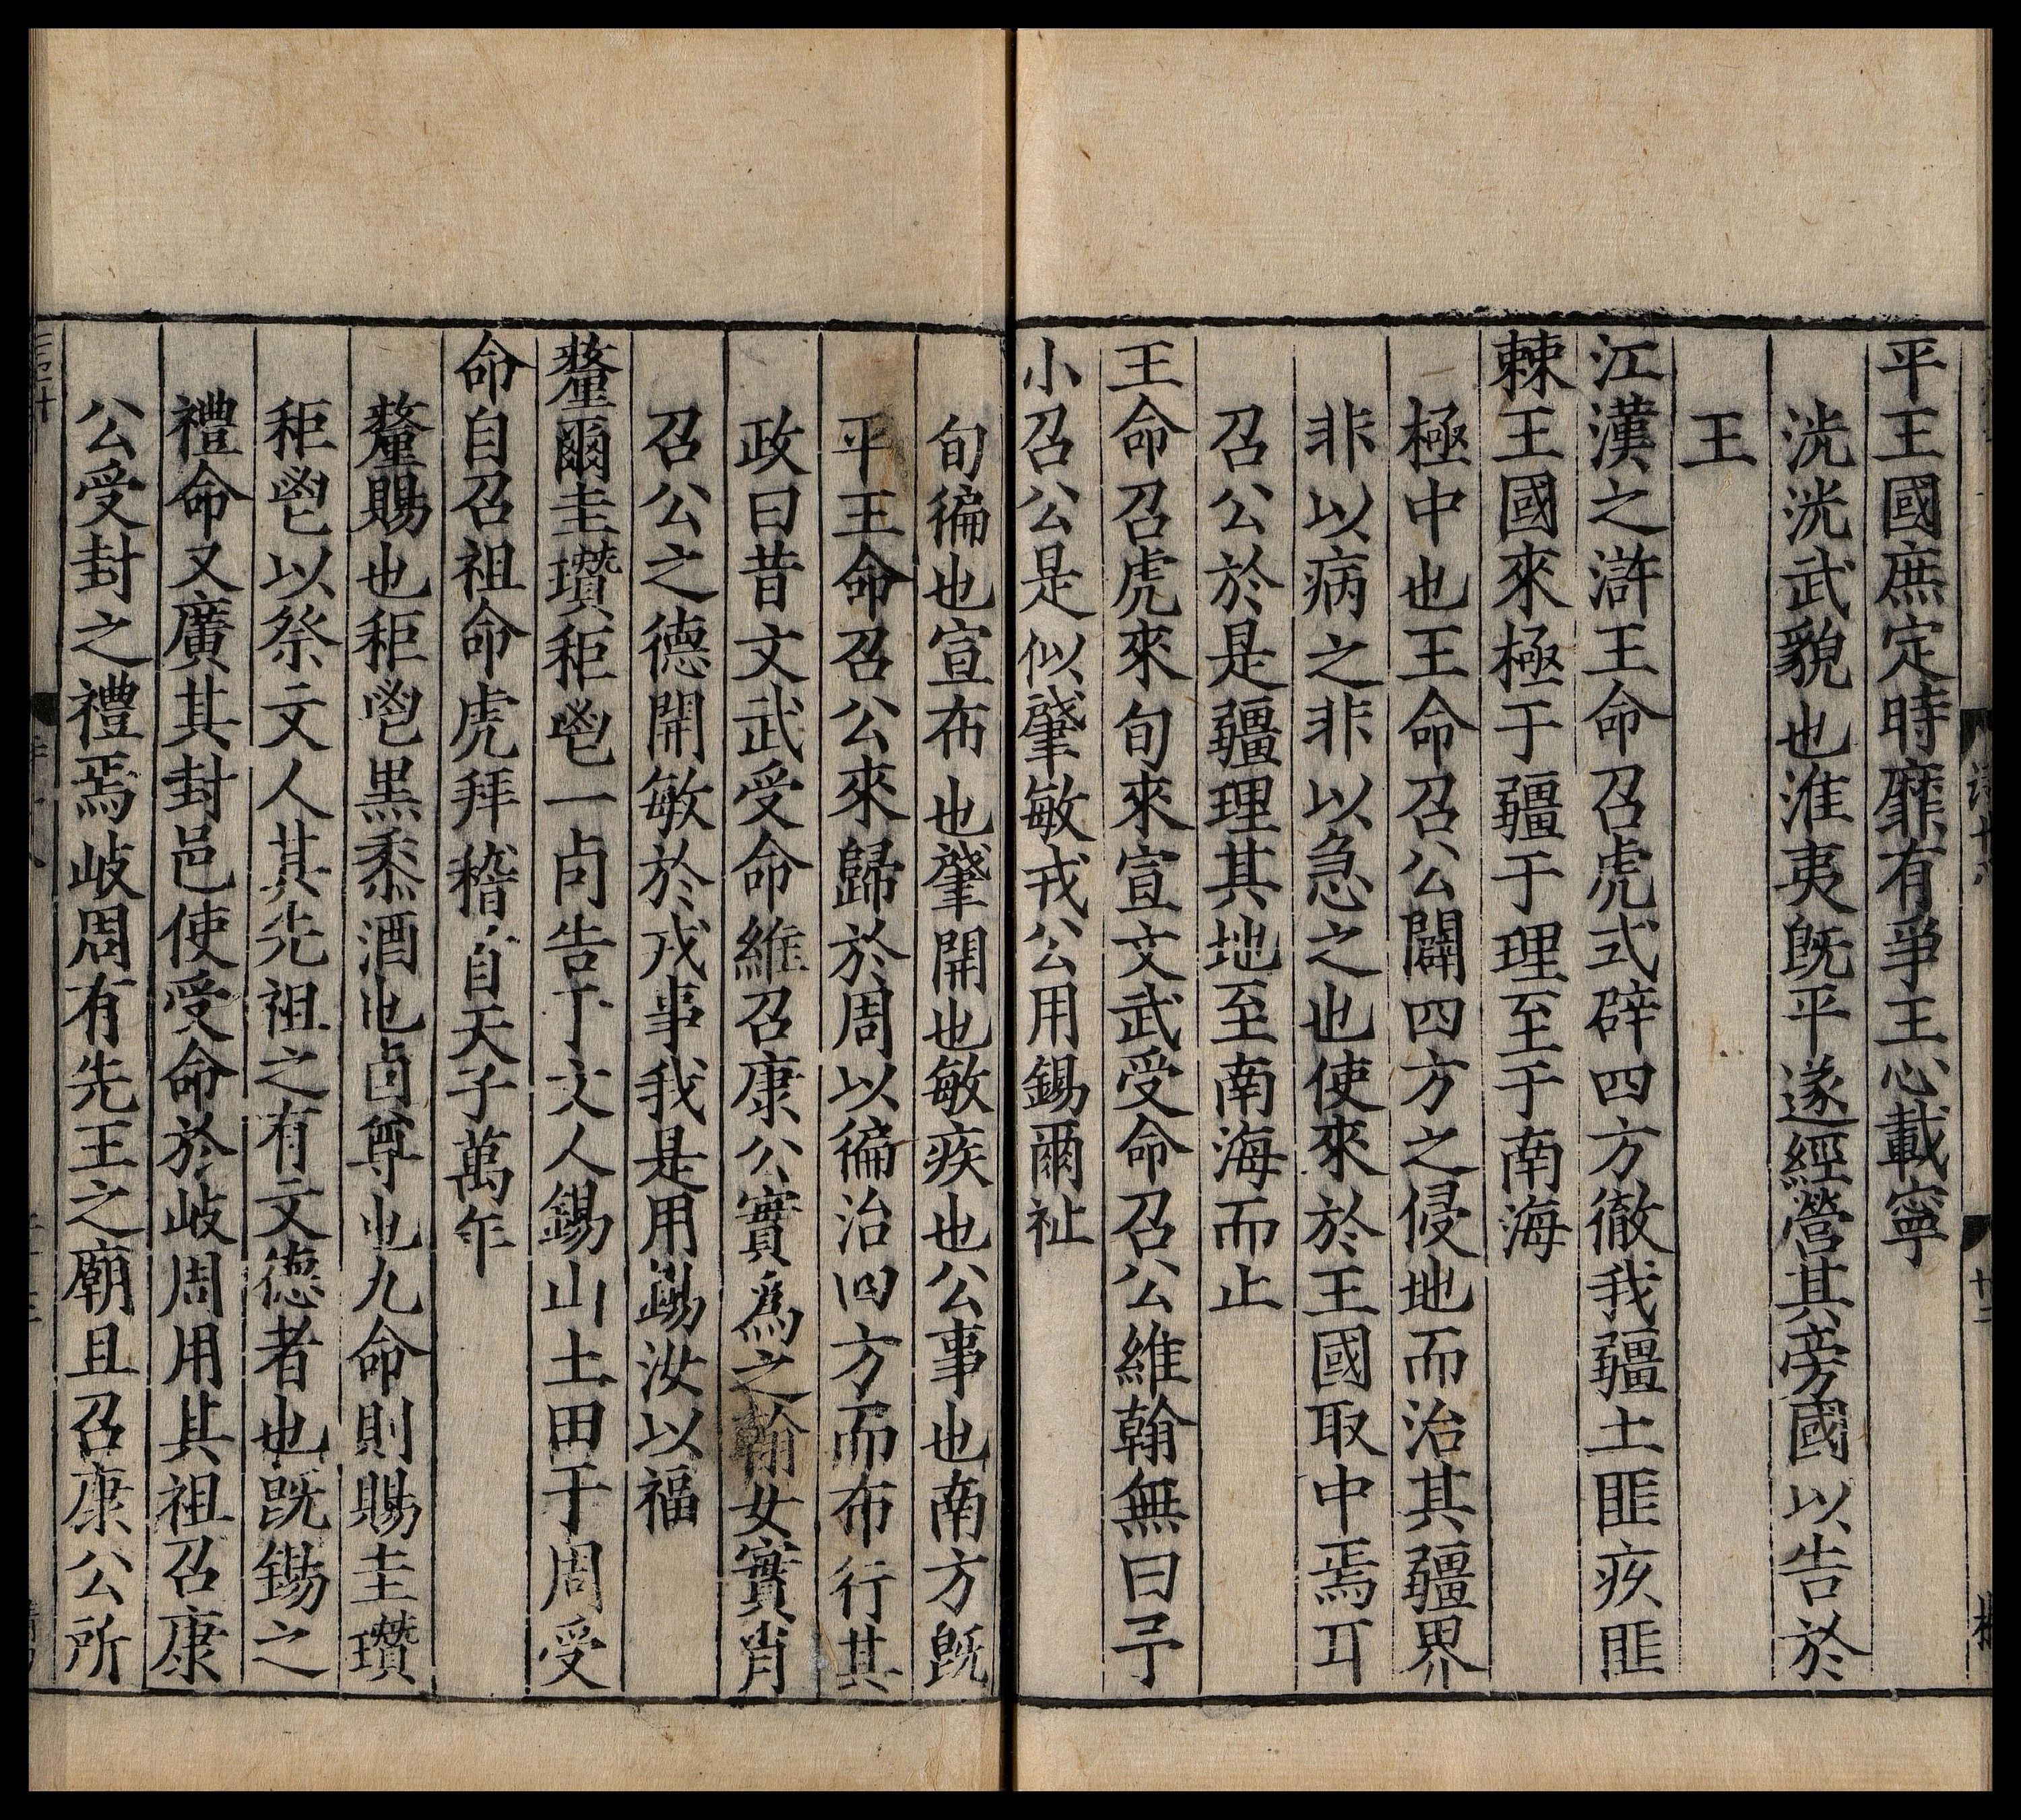 平王國庶定時靡有爭王心載寧
洸洸武貌也淮夷既平遂經營其旁國以告於
王
江漢之滸王命召虎式辟四方徹我疆土匪疚匪
棘王國來極于疆于理至于南海
極中也王命召公闢四方之侵地而治其疆界
非以病之非以急之也使來於王國取中焉耳
召公於是疆理其地至南海而止
王命召虎來旬來宣文武受命召公維翰無曰予
小召公是似肈敏戎公用錫爾祉
旬徧也宣布也肈開也敏疾也公事也南方既
平王命召公來歸於周以徧治四方而布行其
政曰昔文武受命維召康公實爲之翰女實肖
召公之德開敏於戎事我是用錫汝以福
釐爾圭瓚秬鬯一卣告于文人錫山土田于周受
命自召祖命虎拜稽首天子萬年
釐賜也秬鬯黑黍酒也卣尊也九命則賜圭瓚
秬鬯以祭文人其先祖之有文德者也既錫之
禮命又廣其封邑使受命於岐周用其祖召康
公受封之禮焉岐周有先王之廟且召康公所